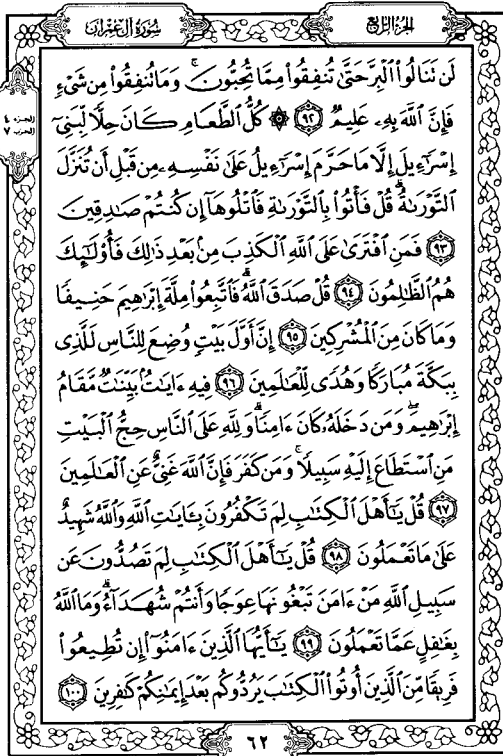 سُورَةُ آلِ عِمْرَانَ
الجُزْءُ الرَّابِعُ
لَن تَنَالُوا۟ ٱلْبِرَّ حَتَّىٰ تُنفِقُوا۟ مِمَّا تُحِبُّونَ ۚ وَمَا تُنفِقُوا۟ مِن شَىْءٍ
فَإِنَّ ٱللَّهَ بِهِۦ عَلِيمٌ ٩٢ ۞ كُلُّ ٱلطَّعَامِ كَانَ حِلًّا لِّبَنِىٓ
الجزء ٤
الحزب ٧
إِسْرَٰٓءِيلَ إِلَّا مَا حَرَّمَ إِسْرَٰٓءِيلُ عَلَىٰ نَفْسِهِۦ مِن قَبْلِ أَن تُنَزَّلَ
ٱلتَّوْرَىٰةُ ۗ قُلْ فَأْتُوا۟ بِٱلتَّوْرَىٰةِ فَٱتْلُوهَآ إِن كُنتُمْ صَٰدِقِينَ
٩٣ فَمَنِ ٱفْتَرَىٰ عَلَى ٱللَّهِ ٱلْكَذِبَ مِنۢ بَعْدِ ذَٰلِكَ فَأُو۟لَٰٓئِكَ
هُمُ ٱلظَّٰلِمُونَ ٩٤ قُلْ صَدَقَ ٱللَّهُ ۗ فَٱتَّبِعُوا۟ مِلَّةَ إِبْرَٰهِيمَ حَنِيفًا
وَمَا كَانَ مِنَ ٱلْمُشْرِكِينَ ٩٥ إِنَّ أَوَّلَ بَيْتٍ وُضِعَ لِلنَّاسِ لَلَّذِى
بِبَكَّةَ مُبَارَكًا وَهُدًى لِّلْعَٰلَمِينَ ٩٦ فِيهِ ءَايَٰتٌۢ بَيِّنَٰتٌ مَّقَامُ
إِبْرَٰهِيمَ ۖ وَمَن دَخَلَهُۥ كَانَ ءَامِنًا ۗ وَلِلَّهِ عَلَى ٱلنَّاسِ حِجُّ ٱلْبَيْتِ
مَنِ ٱسْتَطَاعَ إِلَيْهِ سَبِيلًا ۚ وَمَن كَفَرَ فَإِنَّ ٱللَّهَ غَنِىٌّ عَنِ ٱلْعَٰلَمِينَ
٩٧ قُلْ يَٰٓأَهْلَ ٱلْكِتَٰبِ لِمَ تَكْفُرُونَ بِـَٔايَٰتِ ٱللَّهِ وَٱللَّهُ شَهِيدٌ
عَلَىٰ مَا تَعْمَلُونَ ٩٨ قُلْ يَٰٓأَهْلَ ٱلْكِتَٰبِ لِمَ تَصُدُّونَ عَن
سَبِيلِ ٱللَّهِ مَنْ ءَامَنَ تَبْغُونَهَا عِوَجًا وَأَنتُمْ شُهَدَآءُ ۗ وَمَا ٱللَّهُ
بِغَٰفِلٍ عَمَّا تَعْمَلُونَ ٩٩ يَٰٓأَيُّهَا ٱلَّذِينَ ءَامَنُوٓا۟ إِن تُطِيعُوا۟
فَرِيقًا مِّنَ ٱلَّذِينَ أُوتُوا۟ ٱلْكِتَٰبَ يَرُدُّوكُم بَعْدَ إِيمَٰنِكُمْ كَٰفِرِينَ ١٠٠
٦٢